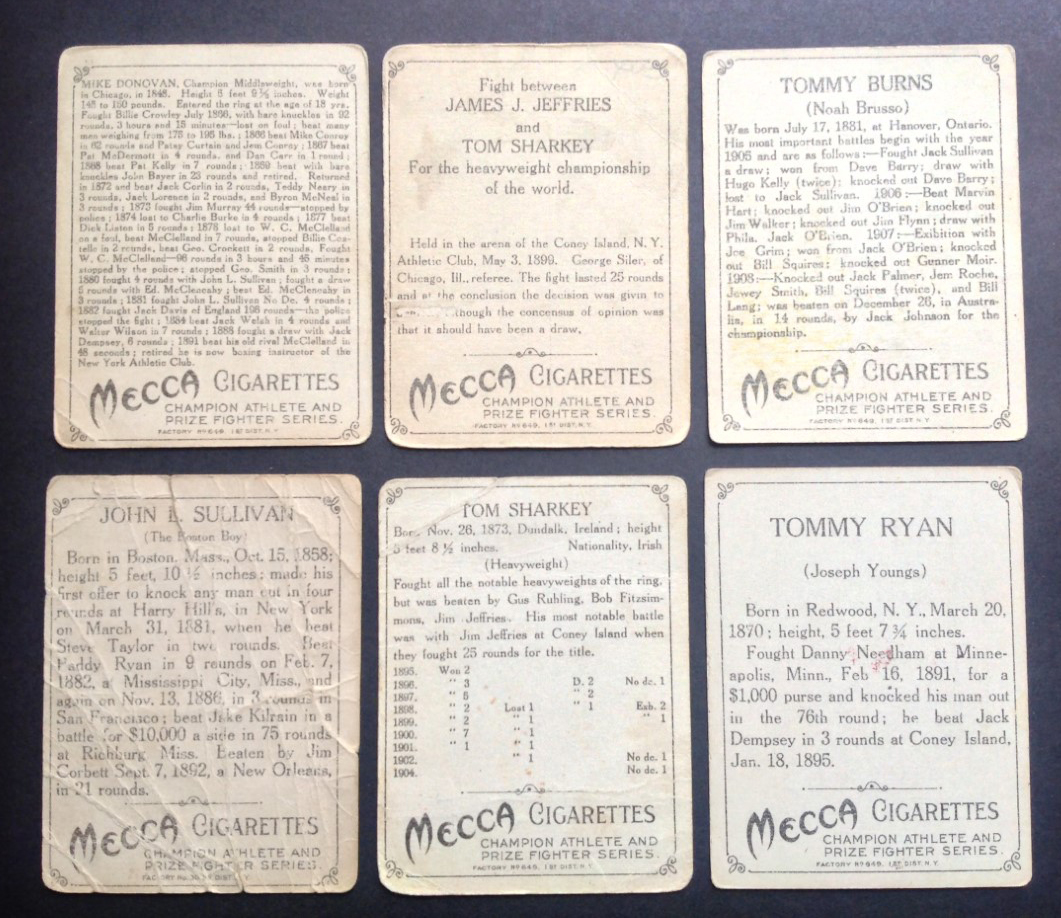 MIKE DONOVAN, Champion Middleweight, was born
in Chicago, in 1848. Height 5 feet 9½ inches. Weight
148 to 150 pounds. Entered the ring at the age of 18 yrs.
Fought Billie Crowley July 1866, with bare knuckles in 92
rounds, 3 hours and 15 minutes—lost on foul; beat many
men weighing from 175 to 195 lbs.; 1866 beat Mike Conroy
in 62 rounds and Patsy Curtain and Jem Conroy; 1867 beat
Pat McDermott in 4 rounds, and Dan Carr in 1 round;
1868 beat Pat Kelly in 7 rounds; 1869 beat with bare
knuckles John Bayer in 23 rounds and retired. Returned
in 1872 and beat Jack Corlin in 2 rounds, Teddy Neary in
3 rounds, Jack Lorence in 2 rounds, and Byron McNeal in
3 rounds; 1873 fought Jim Murray 44 rounds—stopped by
police; 1874 lost to Charlie Burke in 4 rounds; 1877 beat
Dick Liston in 5 rounds; 1878 lost to W. C. McClelland
on a foul, beat McClelland in 7 rounds, stopped Billie Cos-
tello in 2 rounds, beat Geo. Crockett in 2 rounds, Fought
W. C. McClelland—96 rounds in 3 hours and 46 minutes
stopped by the police; stopped Geo. Smith in 3 rounds;
1880 fought 4 rounds with John L. Sullivan; fought a draw
5 rounds with Ed. McClenechy; beat Ed. McClenechy in
3 rounds; 1881 fought John L. Sullivan No De. 4 rounds;
1882 fought Jack Davis of England 198 rounds—the police
stopped the fight; 1884 beat Jack Welsh in 4 rounds and
Walter Wilson in 7 rounds; 1888 fought a draw with Jack
Dempsey, 6 rounds; 1891 beat his old rival McClelland in
48 seconds; retired he is now boxing instructor of the
New York Athletic Club.
MECCA CIGARETTES
CHAMPION ATHLETE AND
PRIZE FIGHTER SERIES.
FACTORY Nº 649, 1ST DIST. N.Y.
Fight between
JAMES J. JEFFRIES
and
TOM SHARKEY
For the heavyweight championship
of the world.
Held in the arena of the Coney Island, N. Y.
Athletic Club, May 3, 1899. George Siler, of
Chicago, Ill., referee. The fight lasted 25 rounds
and at the conclusion the decision was givin to
though the concensus of opinion was
that it should have been a draw.
MECCA CIGARETTES
CHAMPION ATHLETE AND
PRIZE FIGHTER SERIES.
FACTORY Nº 649, 1ST DIST. N.Y.
TOMMY BURNS
(Noah Brusso)
Was born July 17, 1881, at Hanover, Ontario.
His most important battles begin with the year
1905 and are as follows:—Fought Jack Sullivan
a draw; won from Dave Barry; draw with
Hugo Kelly (twice); knocked out Dave Barry;
lost to Jack Sullivan. 1906:—Beat Marvin
Hart; knocked out Jim O'Brien; knocked out
Jim Walker; knocked out Jim Flynn; draw with
Phila. Jack O'Brien. 1907:—Exibition with
Joe Grim; won from Jack O'Brien; knocked
out Bill Squires; knocked out Gunner Moir.
1908:—Knocked out Jack Palmer, Jem Roche,
Jewey Smith, Bill Squires (twice), and Bill
Lang; was beaten on December 26, in Austra-
lia, in 14 rounds, by Jack Johnson for the
championship.
MECCA CIGARETTES
CHAMPION ATHLETE AND
PRIZE FIGHTER SERIES.
FACTORY Nº 649, 1ST DIST. N.Y.
JOHN L. SULLIVAN
(The Boston Boy)
Born in Boston, Mass., Oct. 15, 1858;
height 5 feet, 10 ½ inches; made his
first offer to knock any man out in four
rounds at Harry Hill's, in New York
on March 31, 1881, when he beat
Steve Taylor in two rounds. Beat
Paddy Ryan in 9 rounds on Feb. 7,
1882, a Mississippi City, Miss., and
again on Nov. 13, 1886, in 3 rounds in
San Francisco; beat Jake Kilrain in a
battle for $10,000 a side in 75 rounds
at Richburg Miss. Beaten by Jim
Corbett Sept. 7, 1892, a New Orleans,
in 21 rounds.
MECCA CIGARETTES
CHAMPION ATHLETE AND
PRIZE FIGHTER SERIES.
TOM SHARKEY
Born Nov. 26, 1873, Dundalk, Ireland; height
5 feet 8 ½ inches. Nationality, Irish
(Heavyweight)
Fought all the notable heavyweights of the ring,
but was beaten by Gus Ruhling, Bob Fitzsim-
mons, Jim Jeffries. His most notable battle
was with Jim Jeffries at Coney Island when
they fought 25 rounds for the title.
1895. Won 2
1896. " 3 D. 2 No dc. 1
1897. " 5 " 2
1898. " 2 Lost 1 " 1 Exb. 2
1899. " 2 " 1 " 1
1900. " 7 " 1
1901. " 1 " 1
1902. " 1 No dc. 1
1904. No dc. 1
MECCA CIGARETTES
CHAMPION ATHLETE AND
PRIZE FIGHTER SERIES.
FACTORY Nº 649, 1ST DIST. N.Y.
TOMMY RYAN
(Joseph Youngs)
Born in Redwood, N. Y., March 20,
1870; height, 5 feet 7 ¾ inches.
Fought Danny Needham at Minne-
apolis, Minn., Feb 16, 1891, for a
$1,000 purse and knocked his man out
in the 76th round; he beat Jack
Dempsey in 3 rounds at Coney Island,
Jan. 18, 1895.
MECCA CIGARETTES
CHAMPION ATHLETE AND
PRIZE FIGHTER SERIES.
FACTORY Nº 649, 1ST DIST. N.Y.